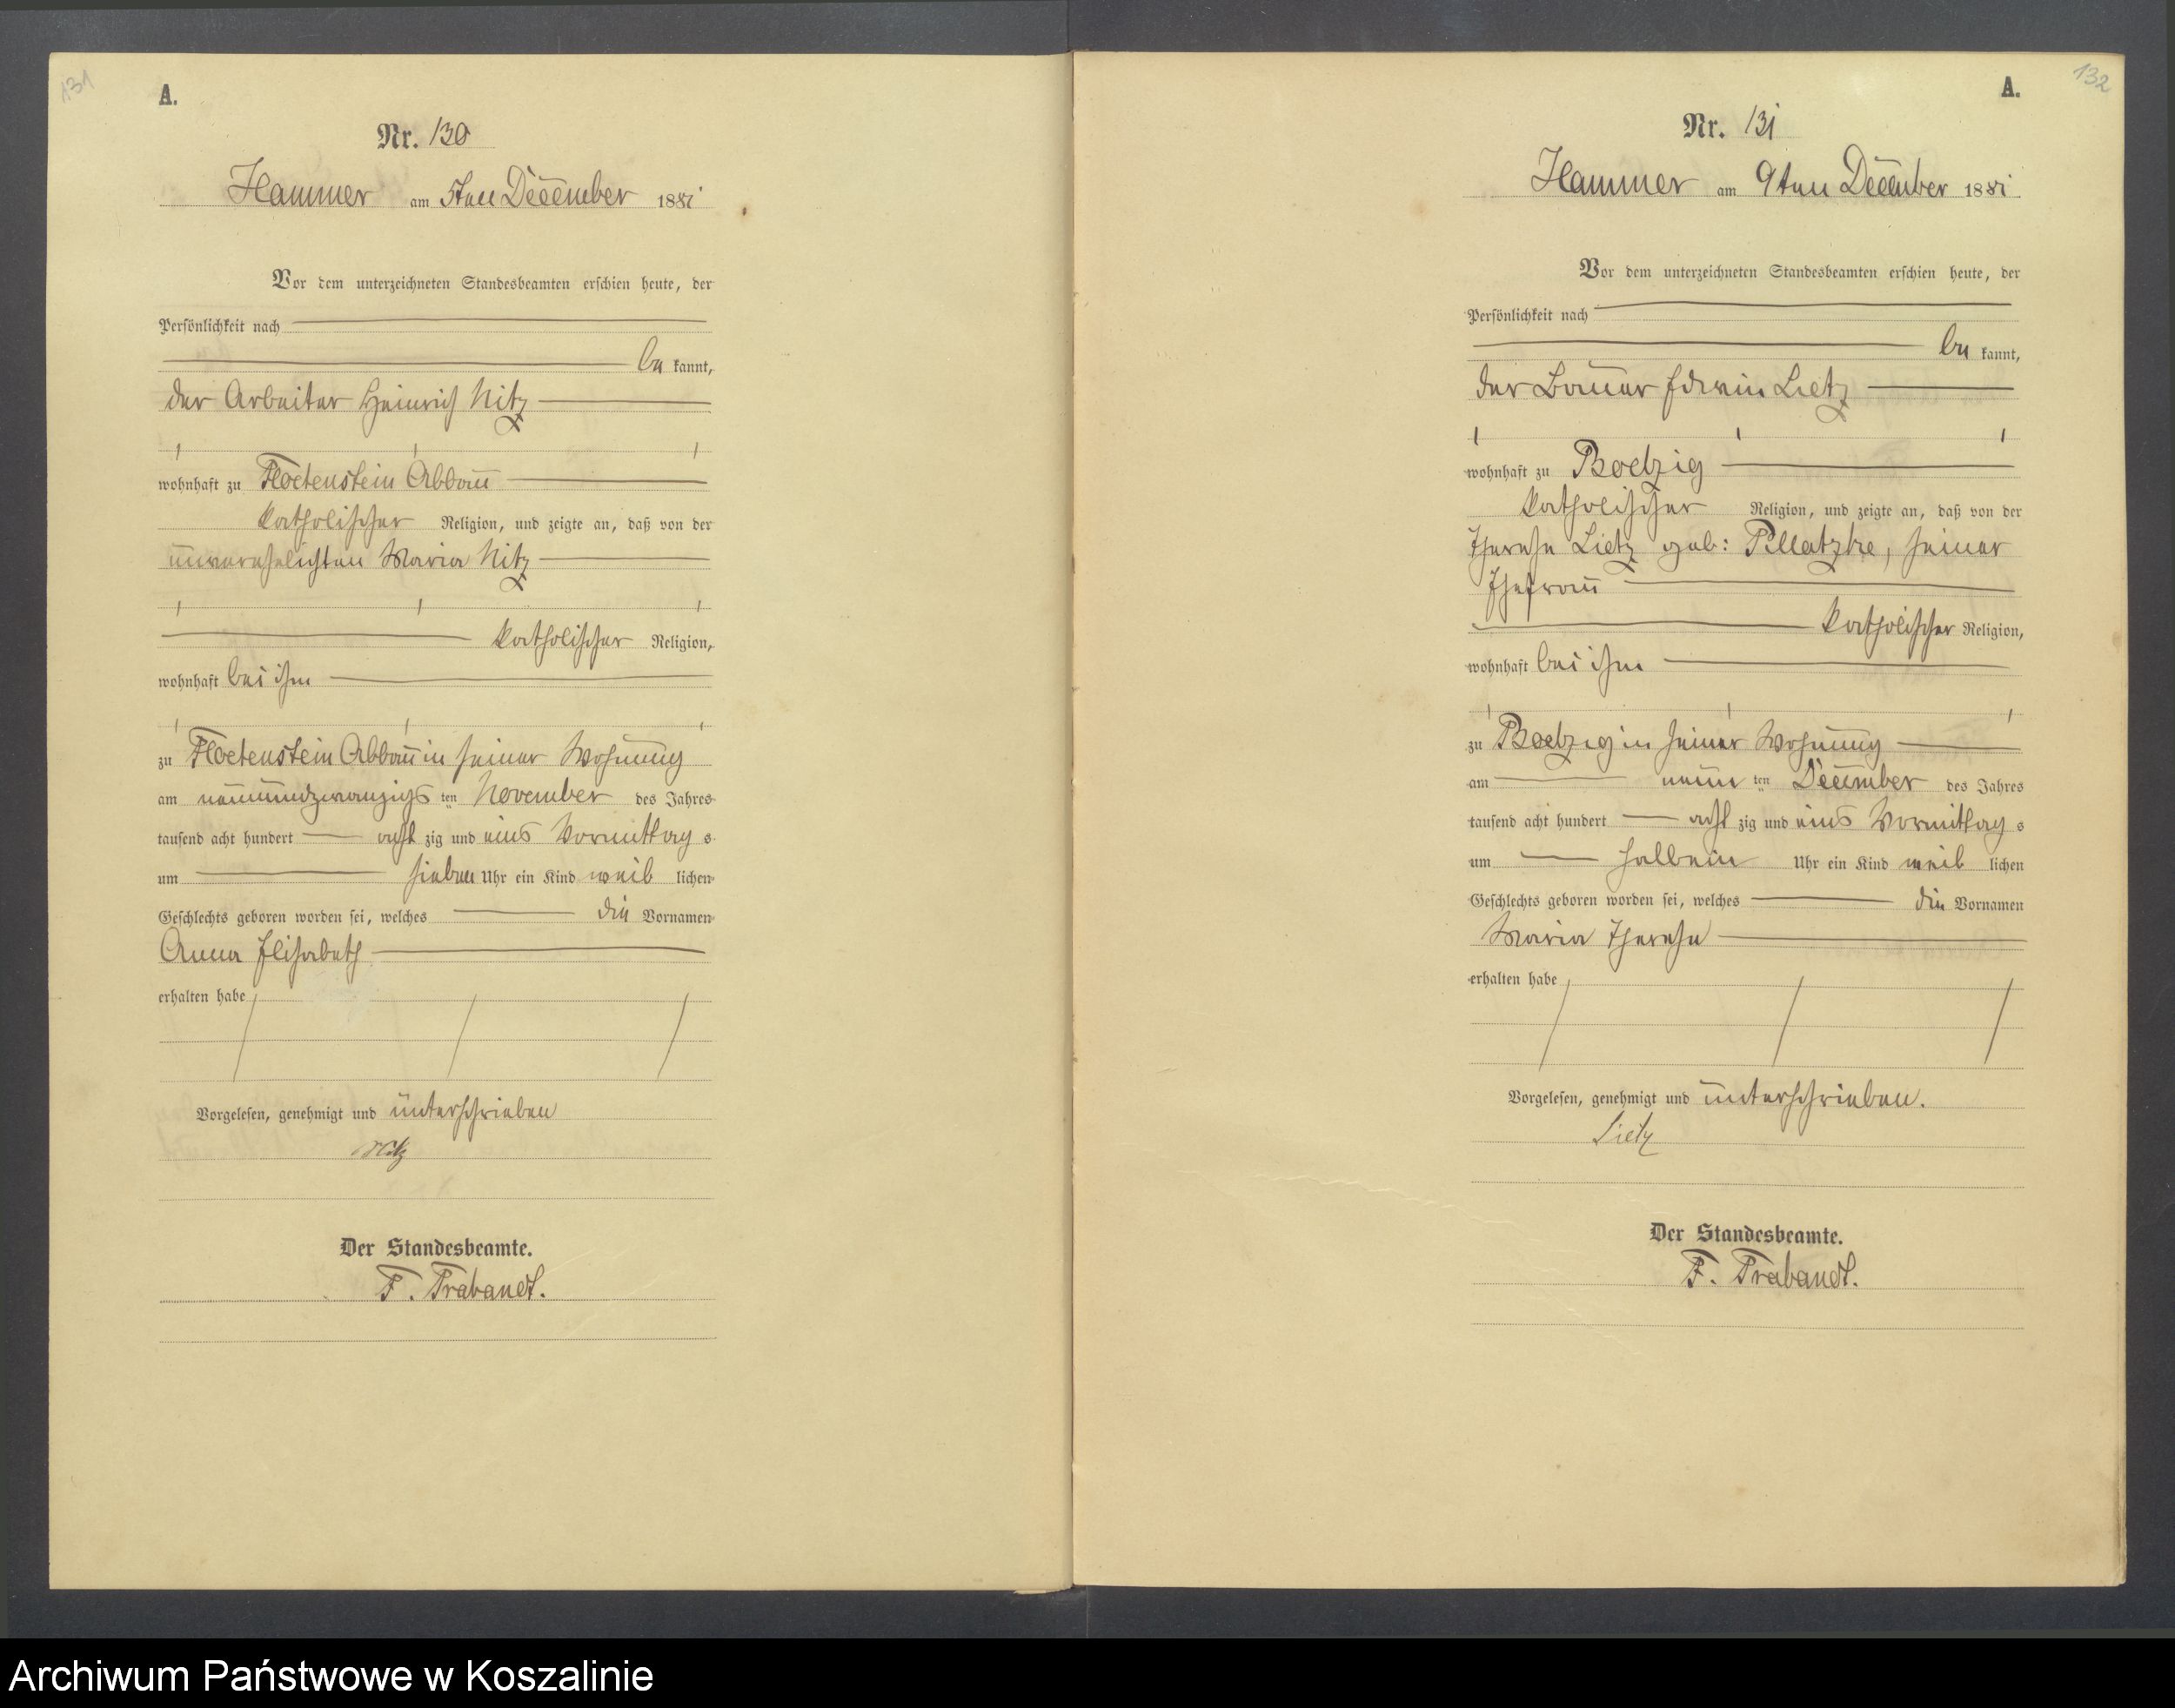 131
A.
Nr. 130
Hammer am 5ten December 1881
Vor dem unterzeichneten Standesbeamten erschien heute, der
Persönlichkeit nach
be kannt,
der Arbeiter Heinrich Nitz
wohnhaft zu Floetenstein Abbau
katholischer Religion, und zeigte an, daß von der
unverehelichten Maria Nitz
katholischer Religion,
wohnhaft bei ihm
zu Floetenstein Abbau in seiner Wohnung
am neunundzwanzigs ten November des Jahres
tausend acht hundert acht zig und eins Vormittag s
um sieben Uhr ein Kind weib lichen
Geschlechts geboren worden sei, welches die Vornamen
Anna Elisabeth
erhalten habe
Vorgelesen, genehmigt und unterschrieben
Nitz
Der Standesbeamte.
F. Trabandt.
132
A.
Nr. 131
Hammer am 9ten December 1881
Vor dem unterzeichneten Standesbeamten erschien heute, der
Persönlichkeit nach
be kannt,
der Bauer Edwin Lietz
wohnhaft zu
katholischer Religion, und zeigte an, daß von der
Therese Lietz geb: seiner
Ehefrau
katholischer Religion,
wohnhaft bei ihm
zu in seiner Wohnung
am neun ten December des Jahres
tausend acht hundert acht zig und eins Vormittag s
um halb ein Uhr ein Kind weib lichen
Geschlechts geboren worden sei, welches die Vornamen
Maria Therese
erhalten habe
Vorgelesen, genehmigt und unterschrieben.
Lietz
Der Standesbeamte.
F. Trabandt.
Archiwum Państwowe w Koszalinie